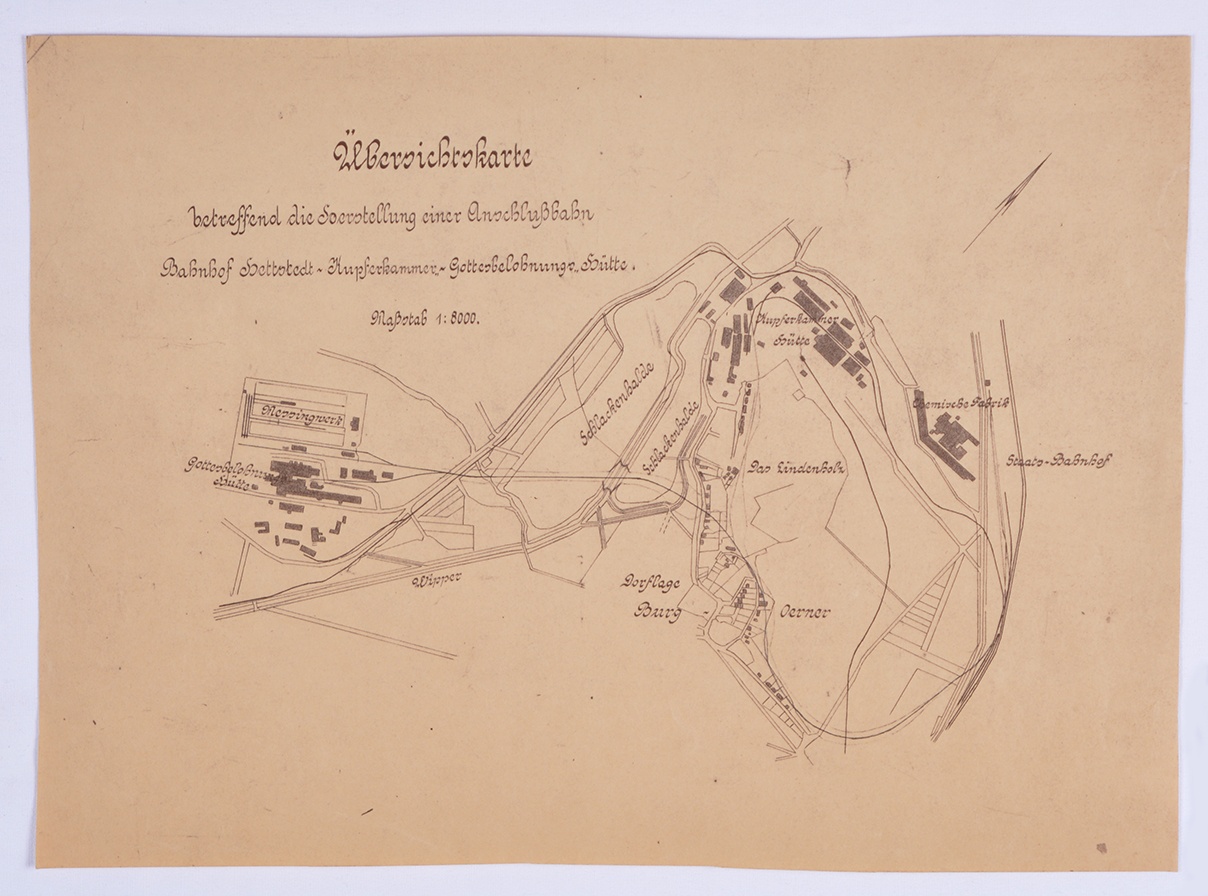 Übersichtskarte
betreffend die Herstellung einer Anschlußbahn
Bahnhof Hettstedt - Kupferkammer- - Gottesbelohnungs-Hütte.
Maßstab 1:8000.
Kupferkammer
Hütte
Schlackenhalde
Schlackenhalde
Messingwerk
Chemische Fabrik
Gottesbelohnung
Hütte
Das Lindenholz
Staats-Bahnhof
Wipper
Dorflage
Burg - Oerner